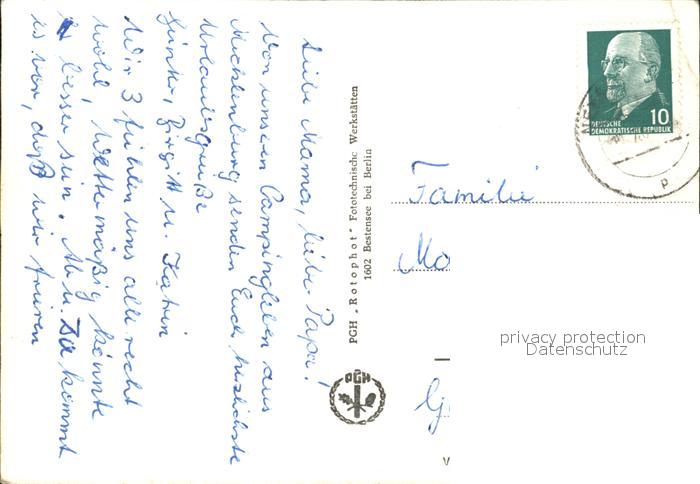 Liebe Mama, lieber Papa!
Von unserem Campingleben aus
Mecklenburg senden Euch herzlichste
Urlaubsgrüße
Günter, Birgitt u. Katrin
Wir 3 fühlen uns alle recht
wohl, wettermäßig könnte
es besser sein. Ab u. Zu kommt
es vor, daß wir frieren
PGH „Rotophot“ Fototechnische Werkstätten
1602 Bestensee bei Berlin
PGH
10
DEUTSCHE
DEMOKRATISCHE REPUBLIK
p
Familie
Mo
privacy protection
Datenschutz